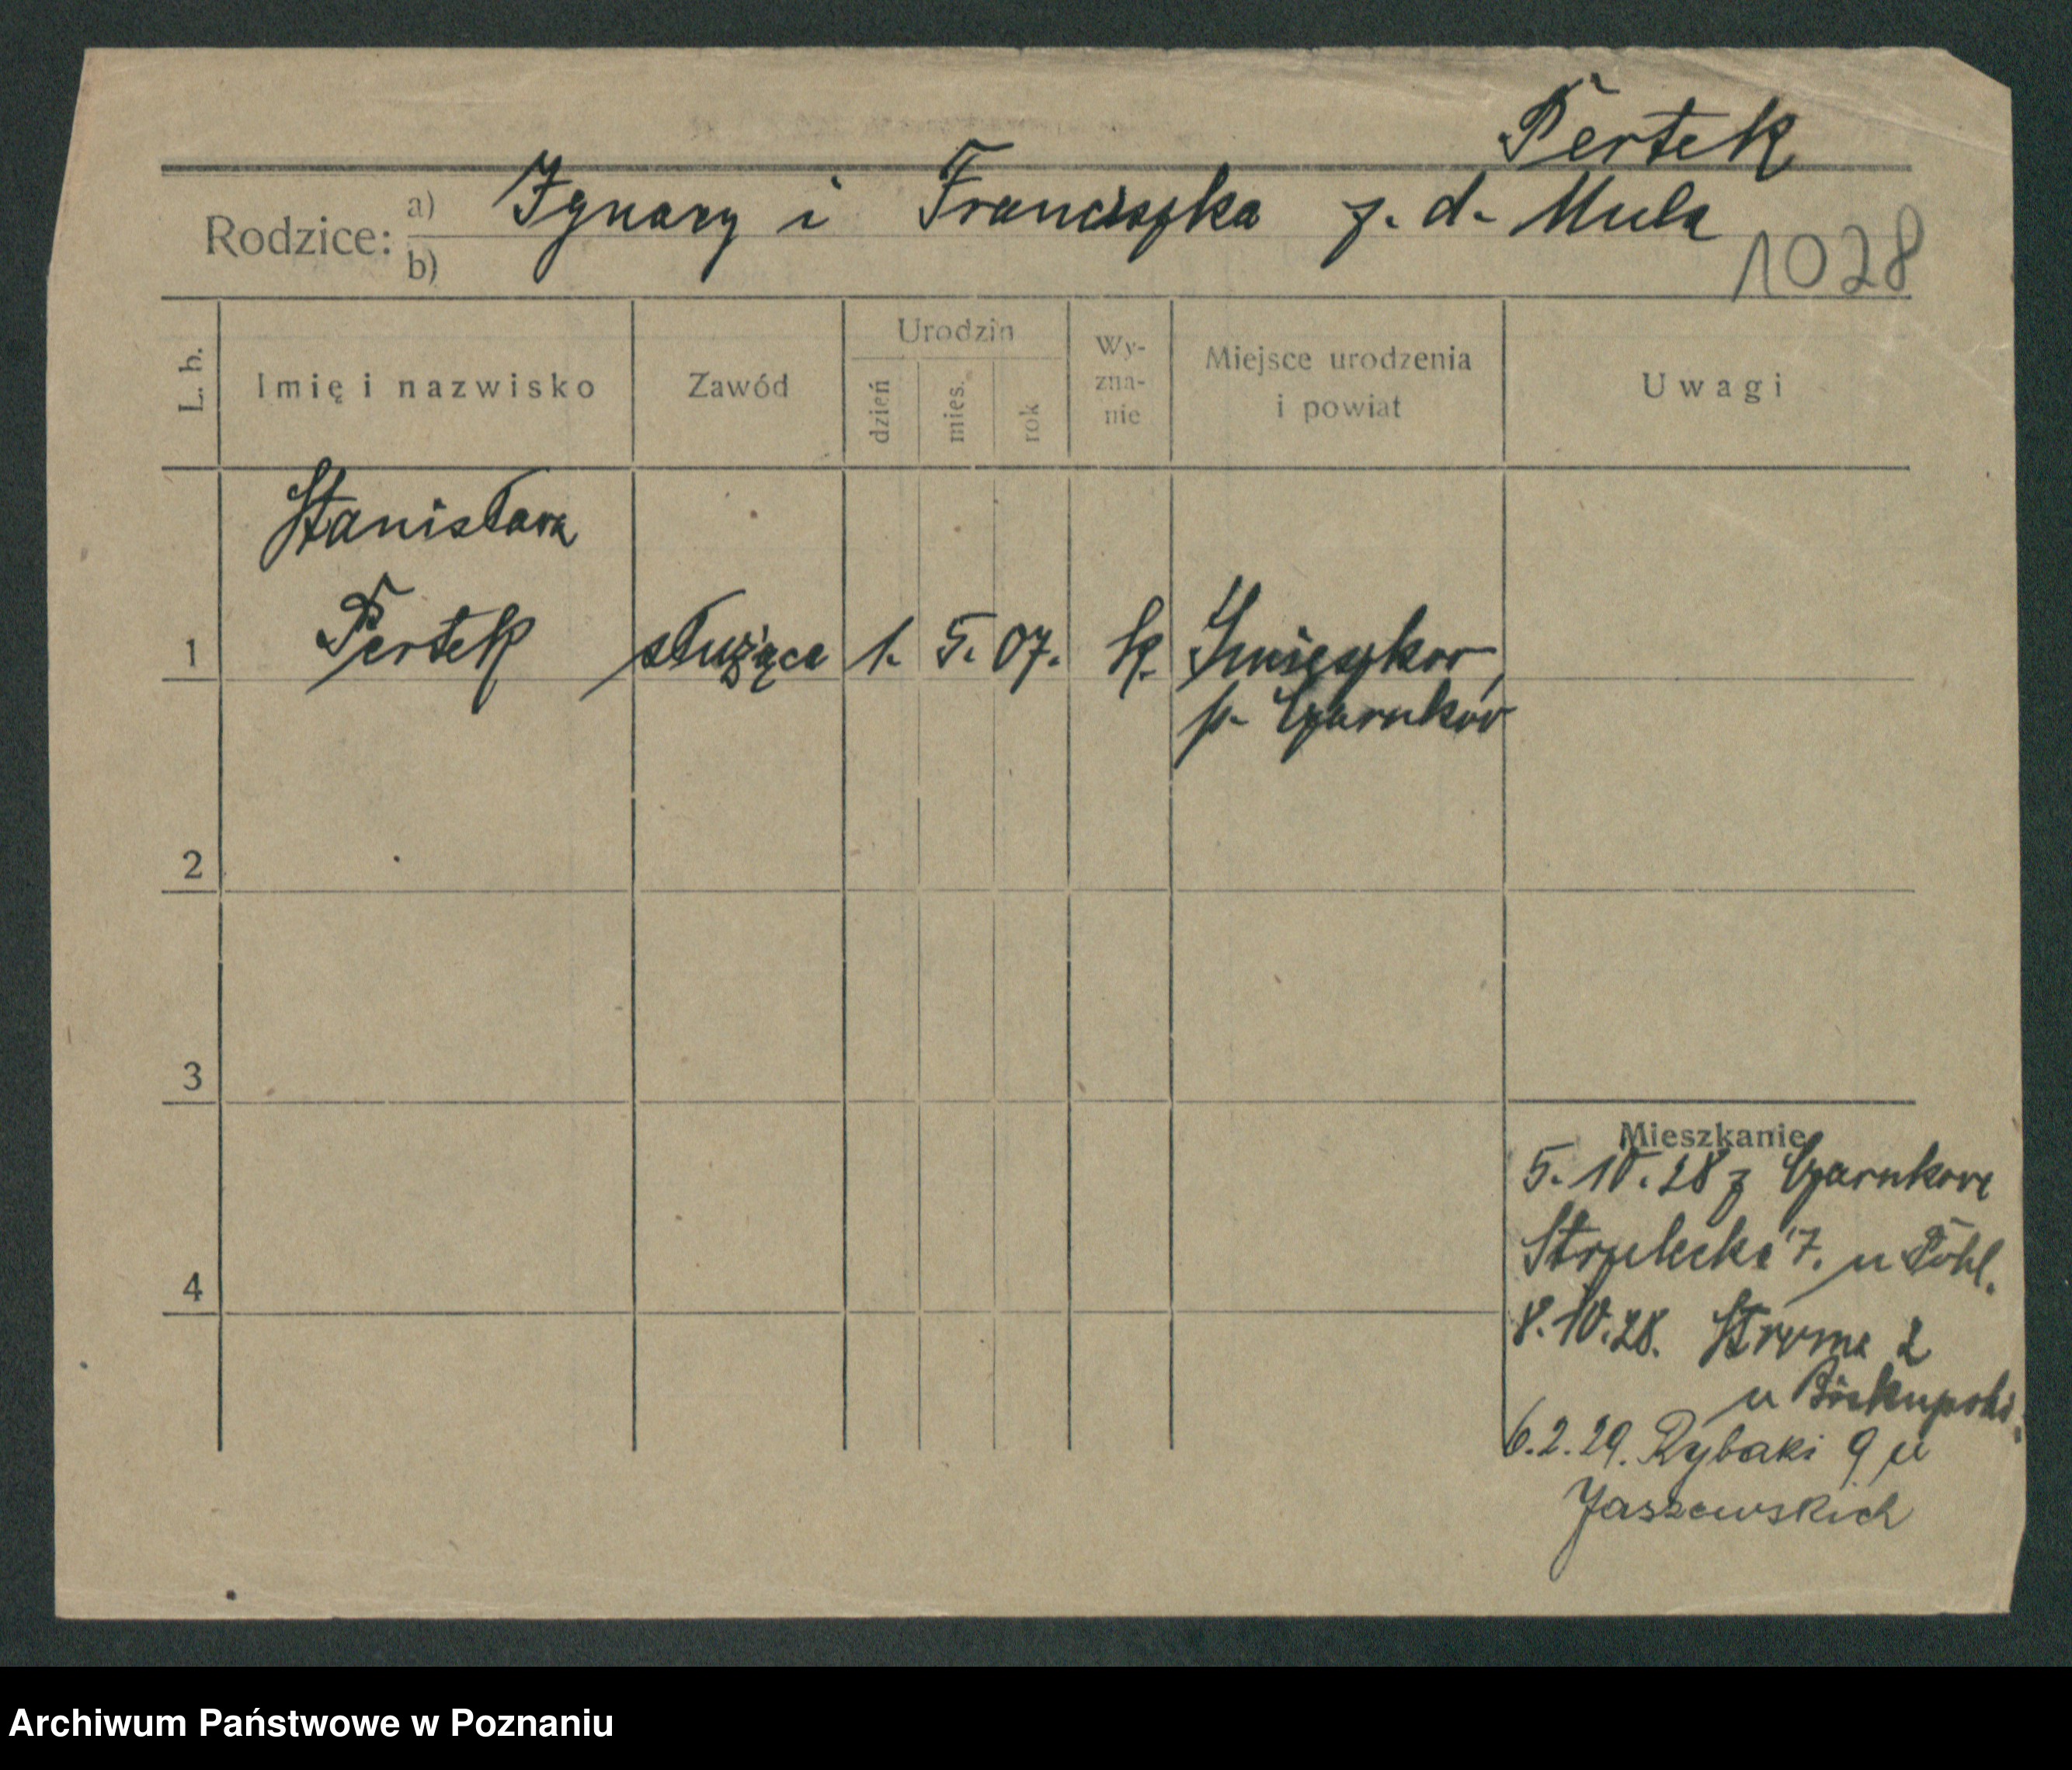 Pertek
Rodzice: a) Ignacy i Franciszka z. d. Mula
b)
1028
L. b.
Imię i nazwisko
Zawód
Urodzin
dzień
mies.
rok
Wy-
zna-
nie
Miejsce urodzenia
i powiat
Uwagi
Stanisława
1 Pertek służąca 1. 5. 07. k. Śmieszkowo,
p. Czarnków
2
3
4
Mieszkanie
5.10.28 z Czarnkowa
Strzelecka 7. u Pöhl.
8.10.28. Stroma 2
u Biskupski.
6.2.29. Rybaki 9 u
Jaszewskich
Archiwum Państwowe w Poznaniu